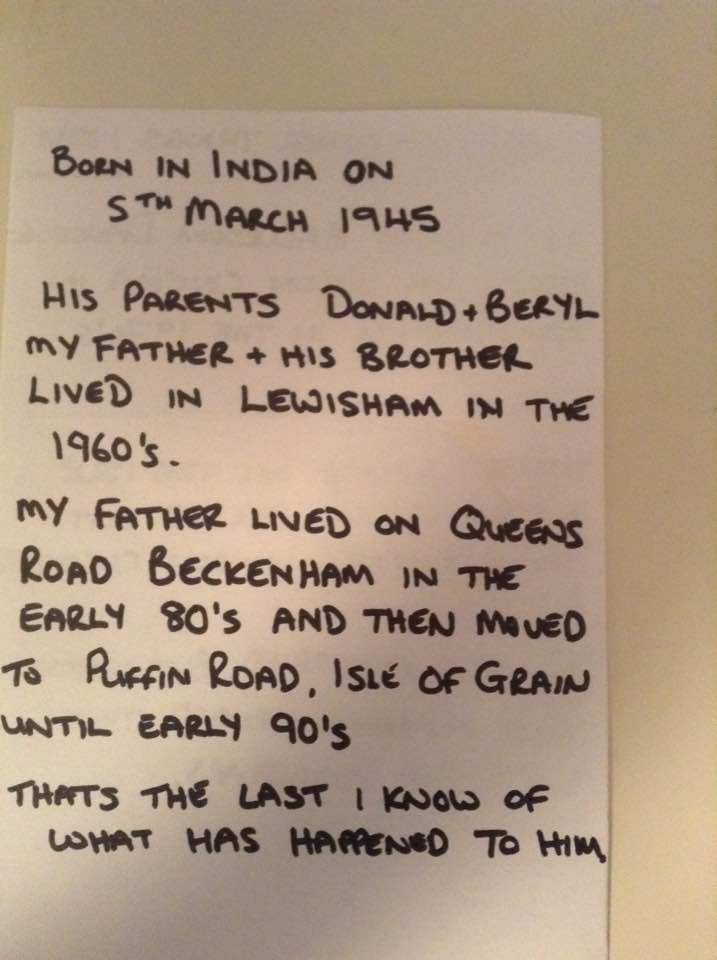 BORN IN INDIA ON
5TH MARCH 1945
HIS PARENTS DONALD + BERYL
MY FATHER + HIS BROTHER
LIVED IN LEWISHAM IN THE
1960's.
MY FATHER LIVED ON QUEENS
ROAD BECKENHAM IN THE
EARLY 80's AND THEN MOVED
TO PUFFIN ROAD, ISLE OF GRAIN
UNTIL EARLY 90's
THATS THE LAST I KNOW OF
WHAT HAS HAPPENED TO HIM